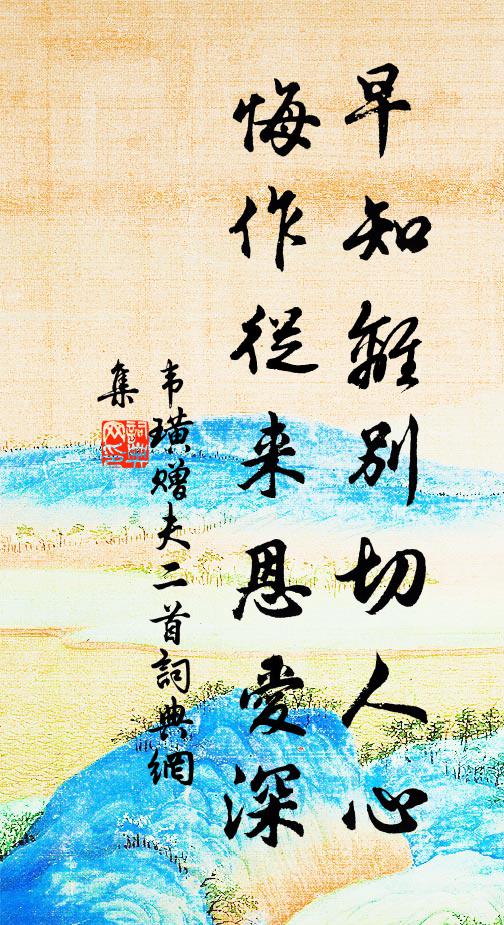 早知離別切人心
悔作從来恩愛深
韦璜赠夫二首詞典網
集